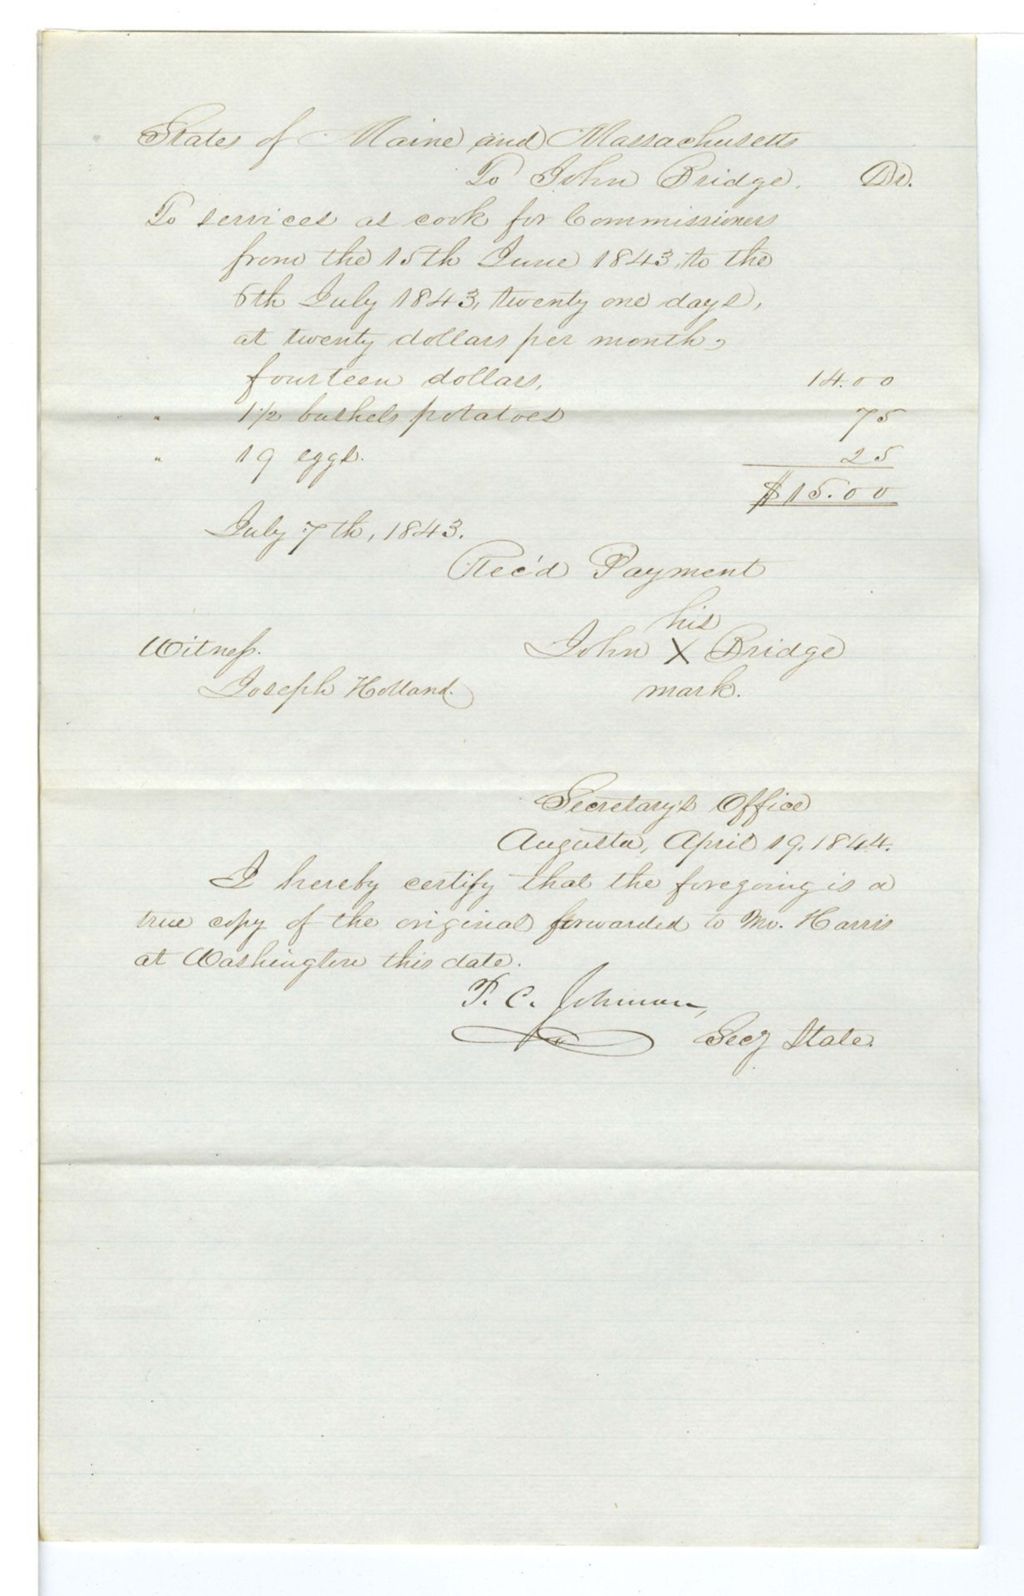 States of Maine and Massachusetts
To John Bridge. Dr.
To services as cook for Commissioners
from the 15th June 1843, to the
6th July 1843, twenty one days,
at twenty dollars per month,
fourteen dollars, 14.00
" 1 1/2 bushels potatoes 75
" 19 eggs. 25
$15.00
July 7th, 1843.
Rec'd Payment
his
Witness. John X Bridge
Joseph Holland. mark.
Secretary's Office
Augusta, April 19, 1844.
I hereby certify that the foregoing is a
true copy of the original forwarded to Mr. Harris
at Washington this date.
P. C. Johnson,
Secy State.